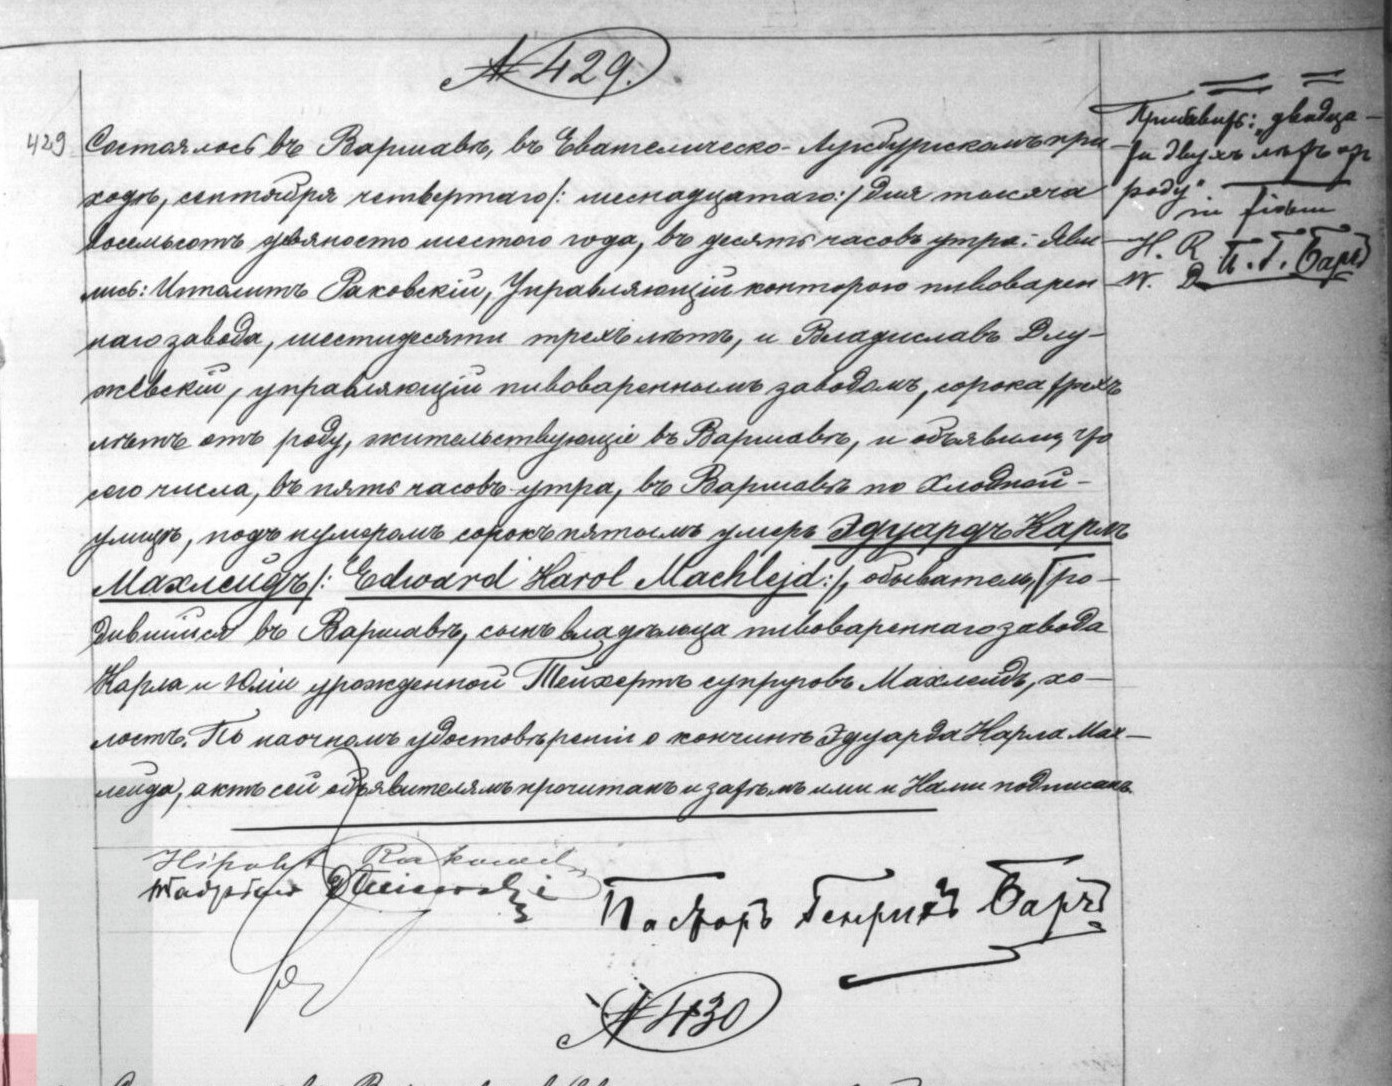 № 429.
429 Состоялось въ Варшавѣ, въ Евангелическо-Аугсбургскомъ при-
ходѣ, сентября четвертаго /: шеснадцатаго :/ дня тысяча
восемьсотъ девяносто шестого года, въ десять часовъ утра. Яви-
лись: Ипполитъ Раковскій, Управляющій конторою пивоварен
наго завода, шестидесяти трехъ лѣтъ, и Владиславъ Длу-
жевскій, управляющій пивовареннымъ заводомъ, сорока трехъ
лѣтъ отъ роду, жительствующіе въ Варшавѣ, и объявили, что
сего числа, въ пять часовъ утра, въ Варшавѣ по Хлодной-
улицѣ, подъ нумеромъ сорокъ пятымъ умеръ Эдуардъ Карлъ
Махлейдъ /: Edward Karol Machlejd :/, обыватель, Г ро-
дившийся въ Варшавѣ, сынъ владѣльца пивовареннаго завода
Карла и Юліи урожденной Тейхертъ супруговъ Махлейдъ, хо-
лостъ. По наочномъ удостовѣреніи о кончинѣ Эдуарда Карла Мах-
лейда, актъ сей объявителямъ прочитанъ и затѣмъ ими и Нами подписанъ.
Прибавить: „двадца-
ти двухъ лѣтъ отъ
роду"
in fidem
H. R.
W. D. П. Г. Бартъ
Hipolit Rakowski
Władysław Dłużewski
Пасторъ Генрихъ Бартъ
№ 430